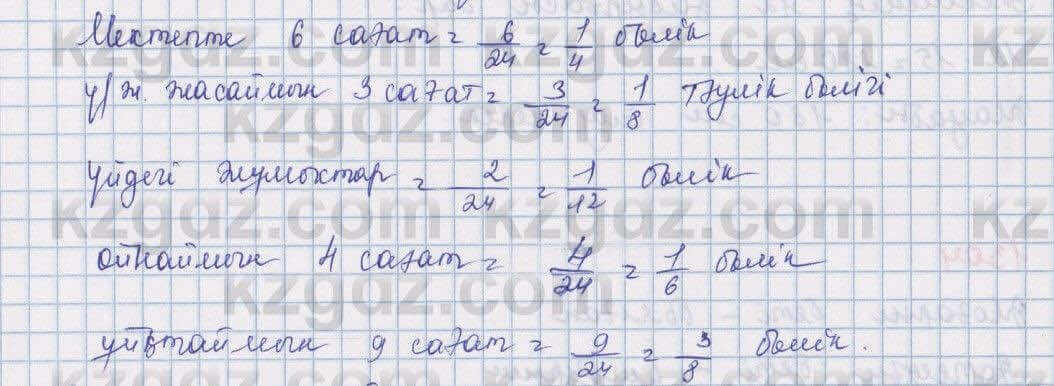 Мектепте 6 сағат = 6/24 = 1/4 бөлік
ү/ж. жасаймын 3 сағат = 3/24 = 1/8 тәулік бөлігі
Үйдегі жұмыстар = 2/24 = 1/12 бөлік
ойнаймын 4 сағат = 4/24 = 1/6 бөлік
ұйықтаймын 9 сағат = 9/24 = 3/8 бөлік.
kzgdz.com